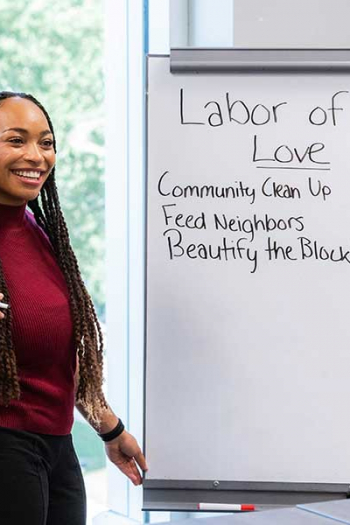 Labor of
Love
Community Clean Up
Feed Neighbors
Beautify the Block